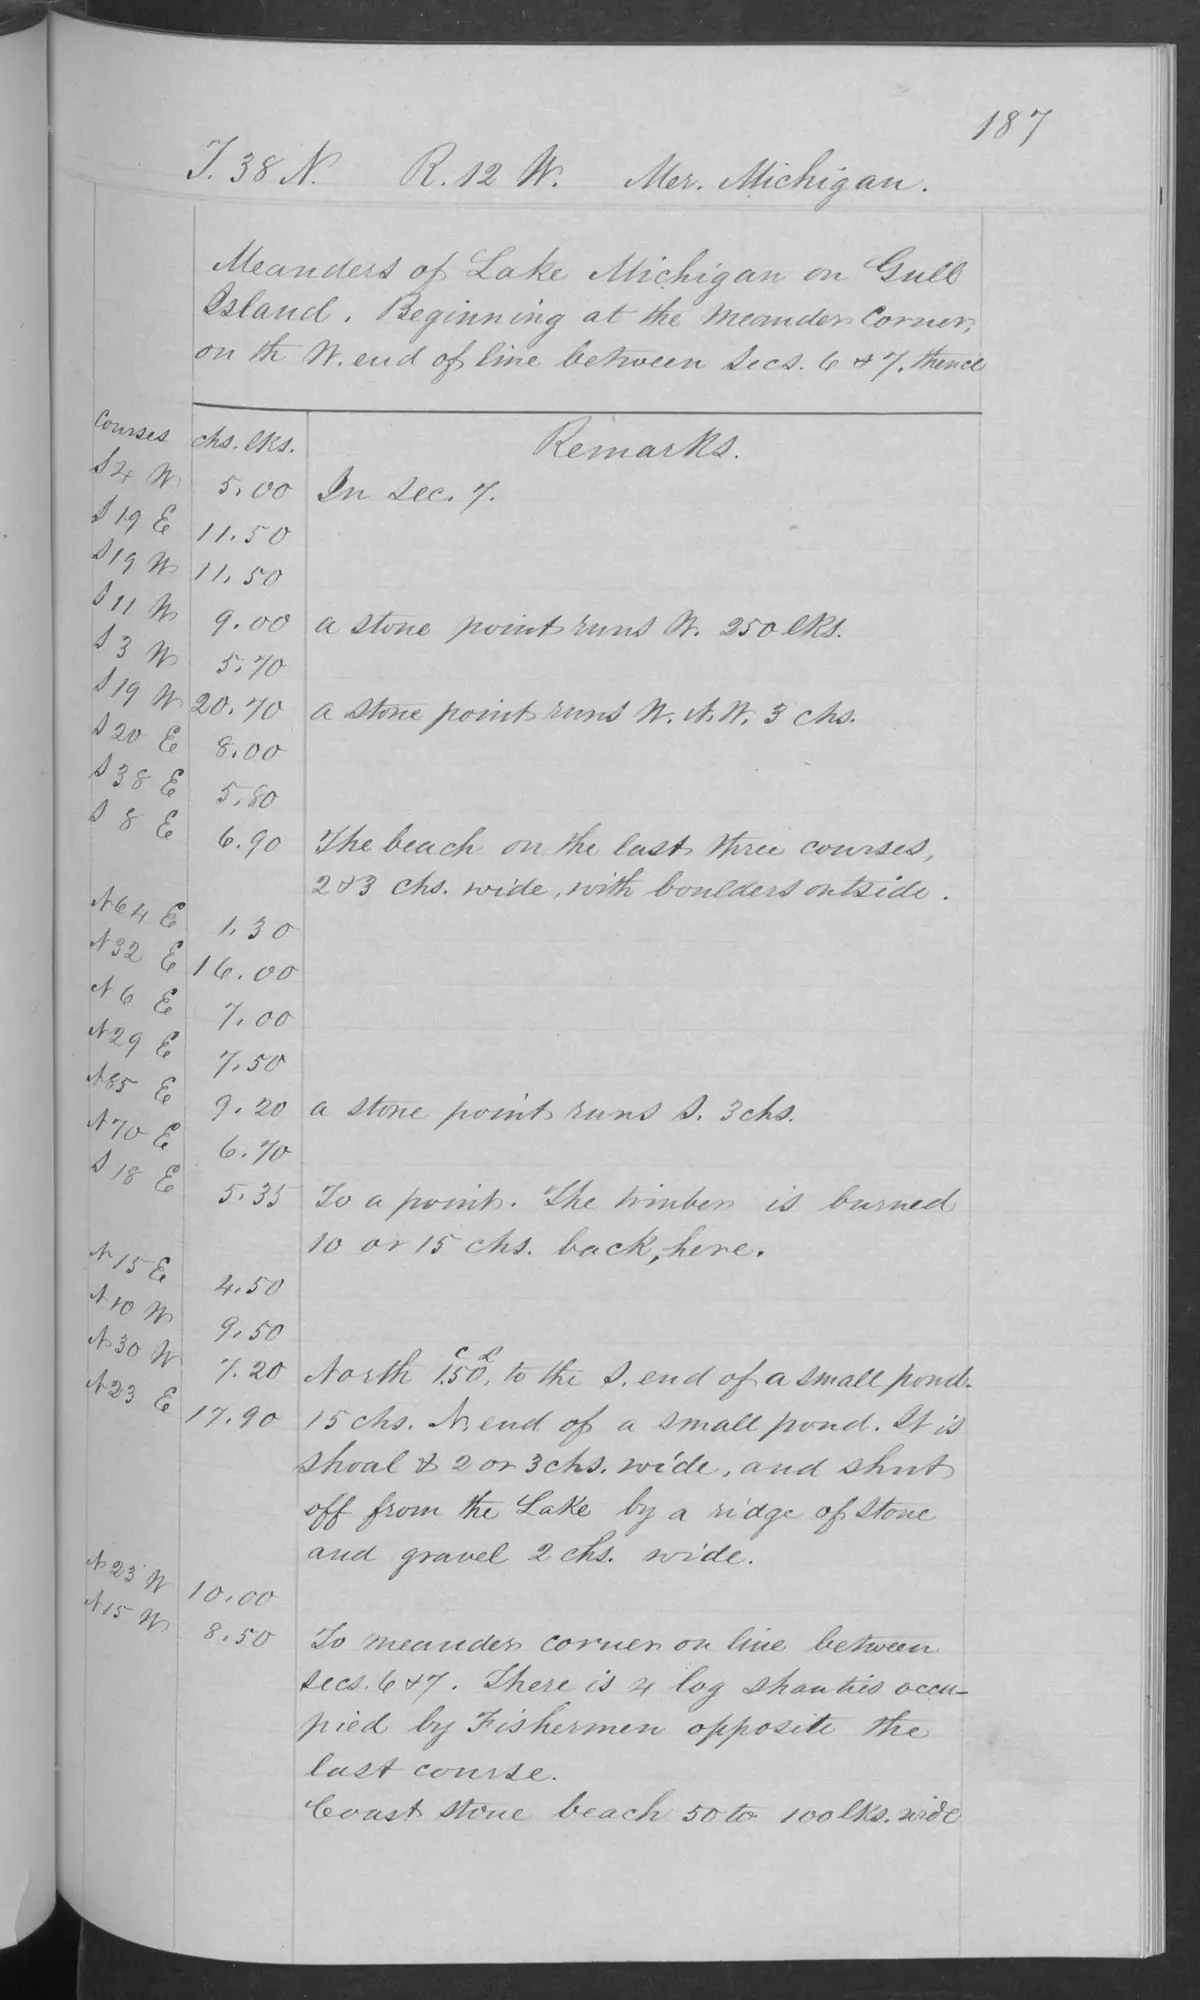 187
T. 38 N. R. 12 W. Mer. Michigan.
Meanders of Lake Michigan on Gull
Island. Beginning at the meander corner,
on th W. end of line between Secs. 6 & 7. thence
Courses chs. lks. Remarks.
S 4 W 5.00 In Sec. 7.
S 19 E 11.50
S 19 W 11.50
S 11 W 9.00 a stone point runs W. 250 lks.
S 3 W 5.70
S 19 W 20.70 a stone point runs W. N. W. 3 chs.
S 20 E 8.00
S 38 E 5.80
S 8 E 6.90 The beach on the last three courses,
2 & 3 chs. wide, with boulders outside.
N 64 E 1.30
N 32 E 16.00
N 6 E 7.00
N 29 E 7.50
N 85 E 9.20 a stone point runs S. 3 chs.
N 70 E 6.70
S 18 E 5.35 To a point. The timber is burned
10 or 15 chs. back, here.
N 15 E 4.50
N 10 W 9.50
N 30 W 7.20 North 1c.50l, to the S. end of a small pond.
N 23 E 17.90 15 chs. N. end of a small pond. It is
shoal & 2 or 3 chs. wide, and shut
off from the Lake by a ridge of stone
and gravel 2 chs. wide.
N 23 W 10.00
N 15 W 8.50 To meander corner on line between
secs. 6 & 7. There is 4 log shanties occu-
pied by Fishermen opposite the
last course.
Coast stone beach 50 to 100 lks. wide